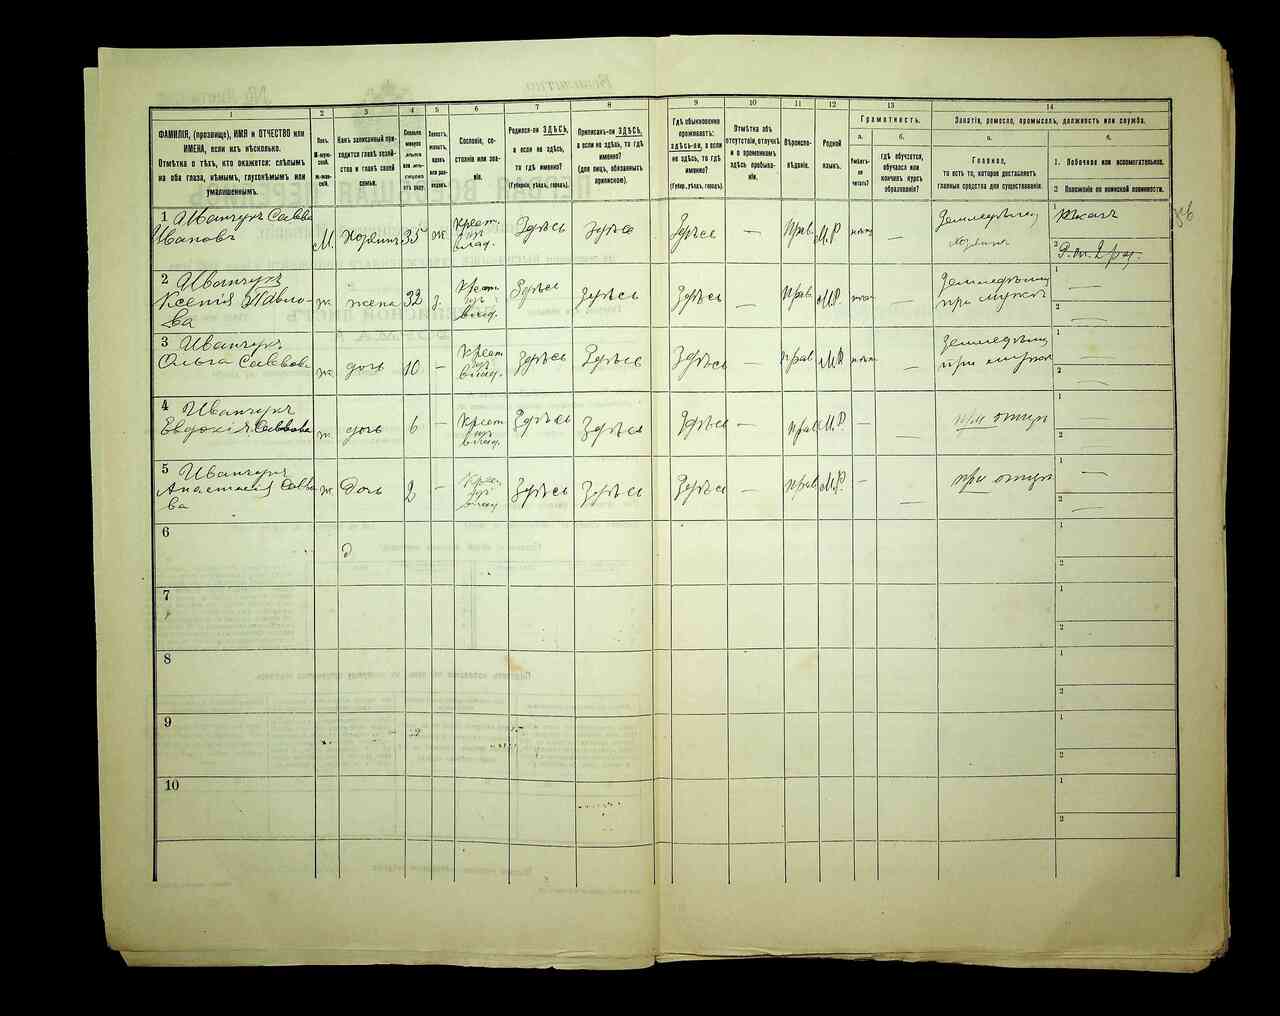 1
2
3
4
5
6
7
8
9
10
11
12
13
14
ФАМИЛІЯ, (прозвище), ИМЯ и ОТЧЕСТВО или
ИМЕНА, если ихъ нѣсколько.
Отмѣтка о тѣхъ, кто окажется: слѣпымъ
на оба глаза, нѣмымъ, глухонѣмымъ или
умалишеннымъ.
Полъ.
Какъ записанный при-
ходится главѣ хозяй-
ства и главѣ своей
семьи.
Сословіе, со-
стояніе или зва-
ніе.
Родился-ли ЗДѢСЬ,
а если не здѣсь,
то гдѣ именно?
(Губернія, уѣздъ, городъ).
Приписанъ-ли ЗДѢСЬ,
а если не здѣсь, то гдѣ
именно?
(для лицъ, обязанныхъ
припискою).
Гдѣ обыкновенно
проживаетъ:
здѣсь-ли, а если
не здѣсь, то гдѣ
именно?
(Губер., уѣздъ, городъ).
Отмѣтка объ
отсутствіи, отлучкѣ
и о временномъ
здѣсь пребыва-
ніи.
Вѣроиспо-
вѣданіе.
Родной
языкъ.
Грамотность.
а.
Умѣетъ-
ли
читать?
б.
гдѣ обучается,
обучался или
кончилъ курсъ
образованія?
Занятіе, ремесло, промыселъ, должность или служба.
а.
Главное,
то есть то, которое доставляетъ
главныя средства для существованія.
б.
1. Побочное или вспомогательное.
2 Положеніе по воинской повинности.
1 Иванчукъ Савва
Ивановъ
М. Хозяинъ 35 ж. Крест. изъ влад. Здѣсь Здѣсь Здѣсь — Прав. М.Р. —
2 Иванчукъ
Ксенія Павло-
ва
ж. жена 32 з. Крест. изъ влад. Здѣсь Здѣсь Здѣсь — Прав. М.Р. —
3 Иванчукъ
Ольга Саввова
ж. дочь 10 — Крест. изъ влад. Здѣсь Здѣсь Здѣсь — прав. М.Р. —
4 Иванчукъ
Евдокія Саввова
ж. дочь 6 — Крест. изъ влад. Здѣсь Здѣсь Здѣсь — прав. М.Р. — — при отцѣ
5 Иванчукъ
Анастасія Савво
ва
ж. Дочь 2 — Крест. изъ влад. Здѣсь Здѣсь Здѣсь — прав. М.Р. — — при отцѣ
6
7
8
9
10